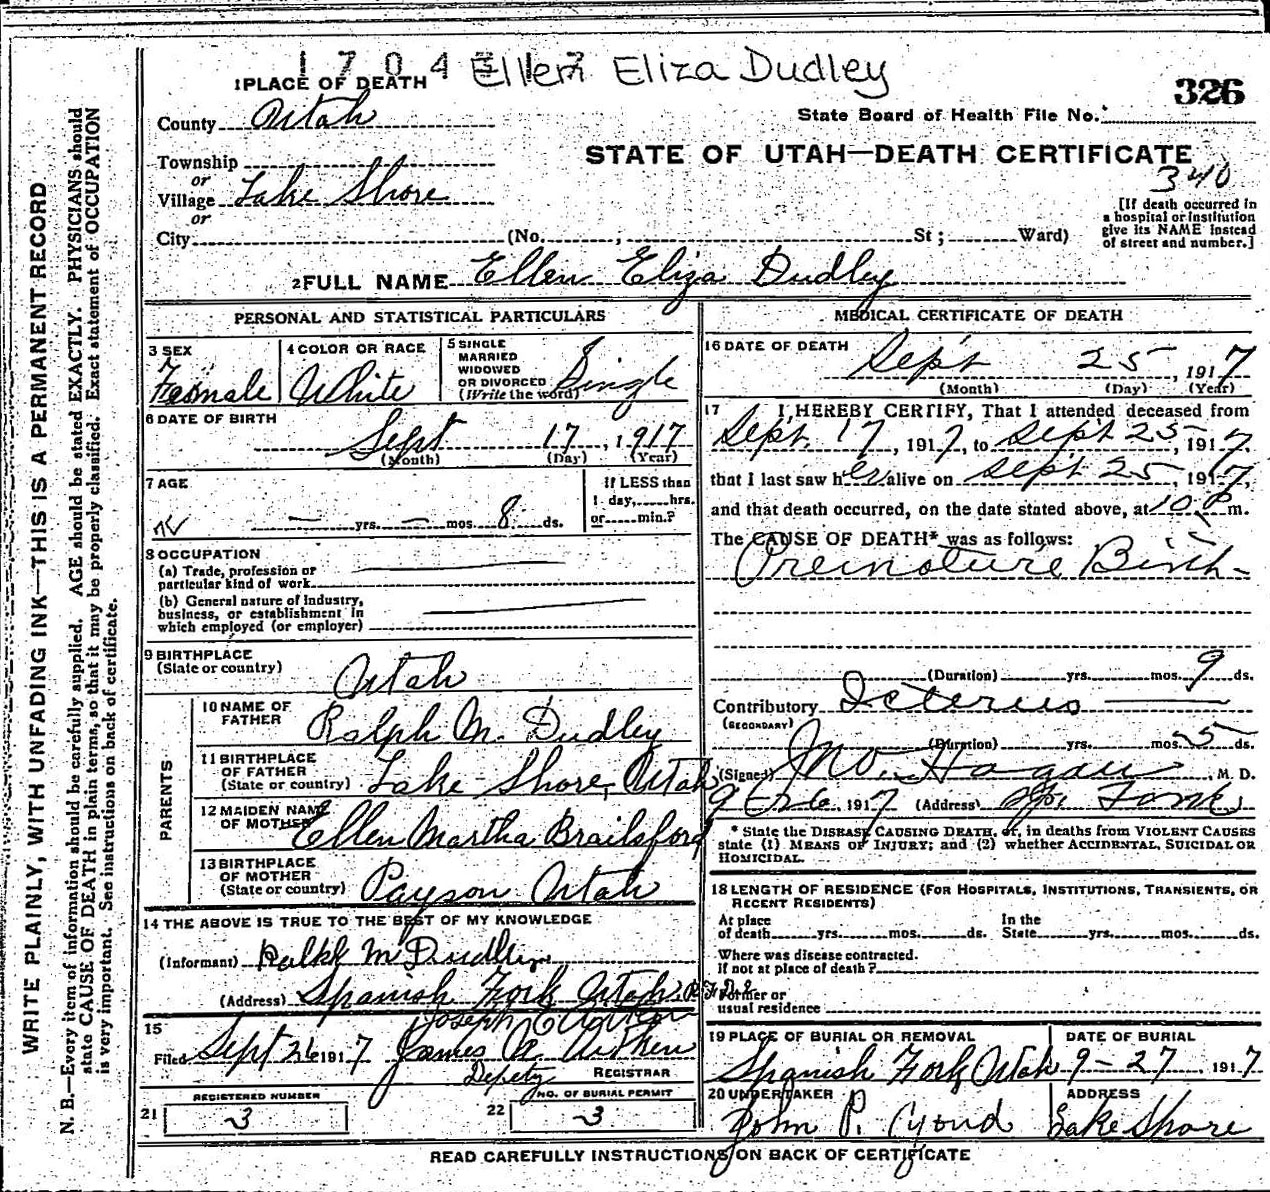 1 7 0 4 3 1 7 Ellen Eliza Dudley
1 PLACE OF DEATH
326
County Utah
State Board of Health File No.
Township
STATE OF UTAH—DEATH CERTIFICATE
340
or
Village Lake Shore
or
City (No. , St ; Ward)
[If death occurred in
a hospital or institution
give its NAME instead
of street and number.]
2 FULL NAME Ellen Eliza Dudley
PERSONAL AND STATISTICAL PARTICULARS
3 SEX
Female
4 COLOR OR RACE
White
5 SINGLE
MARRIED
WIDOWED
OR DIVORCED
(Write the word) Single
6 DATE OF BIRTH
Sept 17, 1917
(Month) (Day) (Year)
7 AGE
If LESS than
1 day, hrs.
— yrs. — mos. 8 ds. or min.?
8 OCCUPATION
(a) Trade, profession or
particular kind of work
(b) General nature of industry,
business, or establishment in
which employed (or employer)
9 BIRTHPLACE
(State or country)
Utah
PARENTS
10 NAME OF
FATHER
Ralph M. Dudley
11 BIRTHPLACE
OF FATHER
(State or country)
Lake Shore, Utah
12 MAIDEN NAME
OF MOTHER
Ellen Martha Brailsford
13 BIRTHPLACE
OF MOTHER
(State or country)
Payson Utah
14 THE ABOVE IS TRUE TO THE BEST OF MY KNOWLEDGE
(Informant) Ralph M Dudley
(Address) Spanish Fork Utah. R.F.D.2
15
Joseph
Filed Sept 26 1917 James A Aitken
Depety REGISTRAR
REGISTERED NUMBER
21 3
NO. OF BURIAL PERMIT
22 3
MEDICAL CERTIFICATE OF DEATH
16 DATE OF DEATH
Sept 25, 1917
(Month) (Day) (Year)
17 I HEREBY CERTIFY, That I attended deceased from
Sept. 17, 1917, to Sept 25, 1917,
that I last saw her alive on Sept 25, 1917,
and that death occurred, on the date stated above, at 10 P m.
The CAUSE OF DEATH* was as follows:
Premature Birth
(Duration) yrs. mos. 9 ds.
Contributory Icterus
(SECONDARY)
(Duration) yrs. mos. 5 ds.
(Signed) Hagan M. D.
9/26 1917 (Address) Sp. Fork
* State the DISEASE CAUSING DEATH, or, in deaths from VIOLENT CAUSES
state (1) MEANS OF INJURY; and (2) whether ACCIDENTAL, SUICIDAL OR
HOMICIDAL.
18 LENGTH OF RESIDENCE (FOR HOSPITALS, INSTITUTIONS, TRANSIENTS, OR
RECENT RESIDENTS)
At place In the
of death yrs. mos. ds. State yrs. mos. ds.
Where was disease contracted.
if not at place of death?
Former or
usual residence
19 PLACE OF BURIAL OR REMOVAL
Spanish Fork Utah
DATE OF BURIAL
9-27 1917
20 UNDERTAKER
John P.
ADDRESS
Lake Shore
READ CAREFULLY INSTRUCTIONS ON BACK OF CERTIFICATE
WRITE PLAINLY, WITH UNFADING INK—THIS IS A PERMANENT RECORD
N. B.—Every item of information should be carefully supplied. AGE should be stated EXACTLY. PHYSICIANS should
state CAUSE OF DEATH in plain terms, so that it may be properly classified. Exact statement of OCCUPATION
is very important. See instructions on back of certificate.